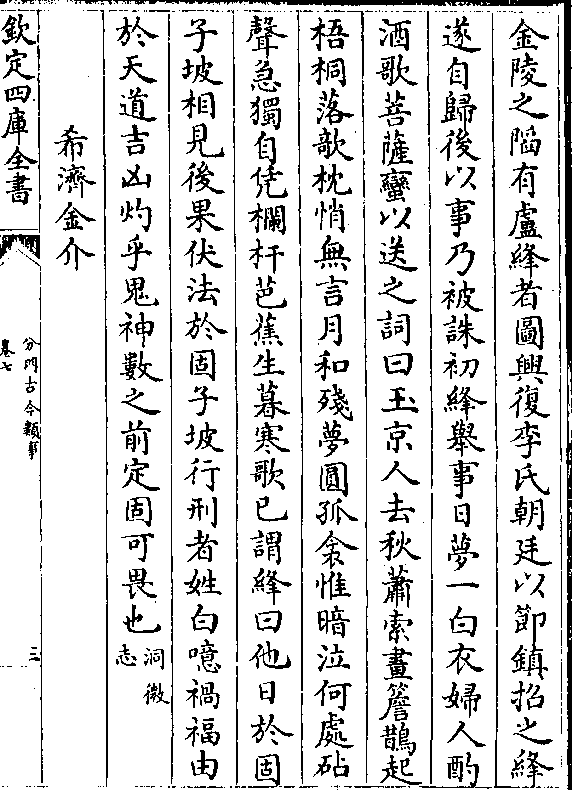 金陵之陷有盧絳者圖興復李氏朝廷以節鎮招之絳
遂自歸後以事乃被誅初絳舉事日夢一白衣婦人酌
酒歌菩薩蠻以送之詞曰玉京人去秋蕭索畫簷鵲起
梧桐落欹枕悄無言月和殘夢圓孤衾惟暗泣何處砧
聲急獨自凭欄杆芭蕉生暮寒歌已謂絳曰他日於固
子坡相見後果伏法於固子坡行刑者姓白噫禍福由
於天道吉凶灼乎鬼神數之前定固可畏也洞微
志
希濟金介
欽定四庫全書
分門古今類事
卷七
三